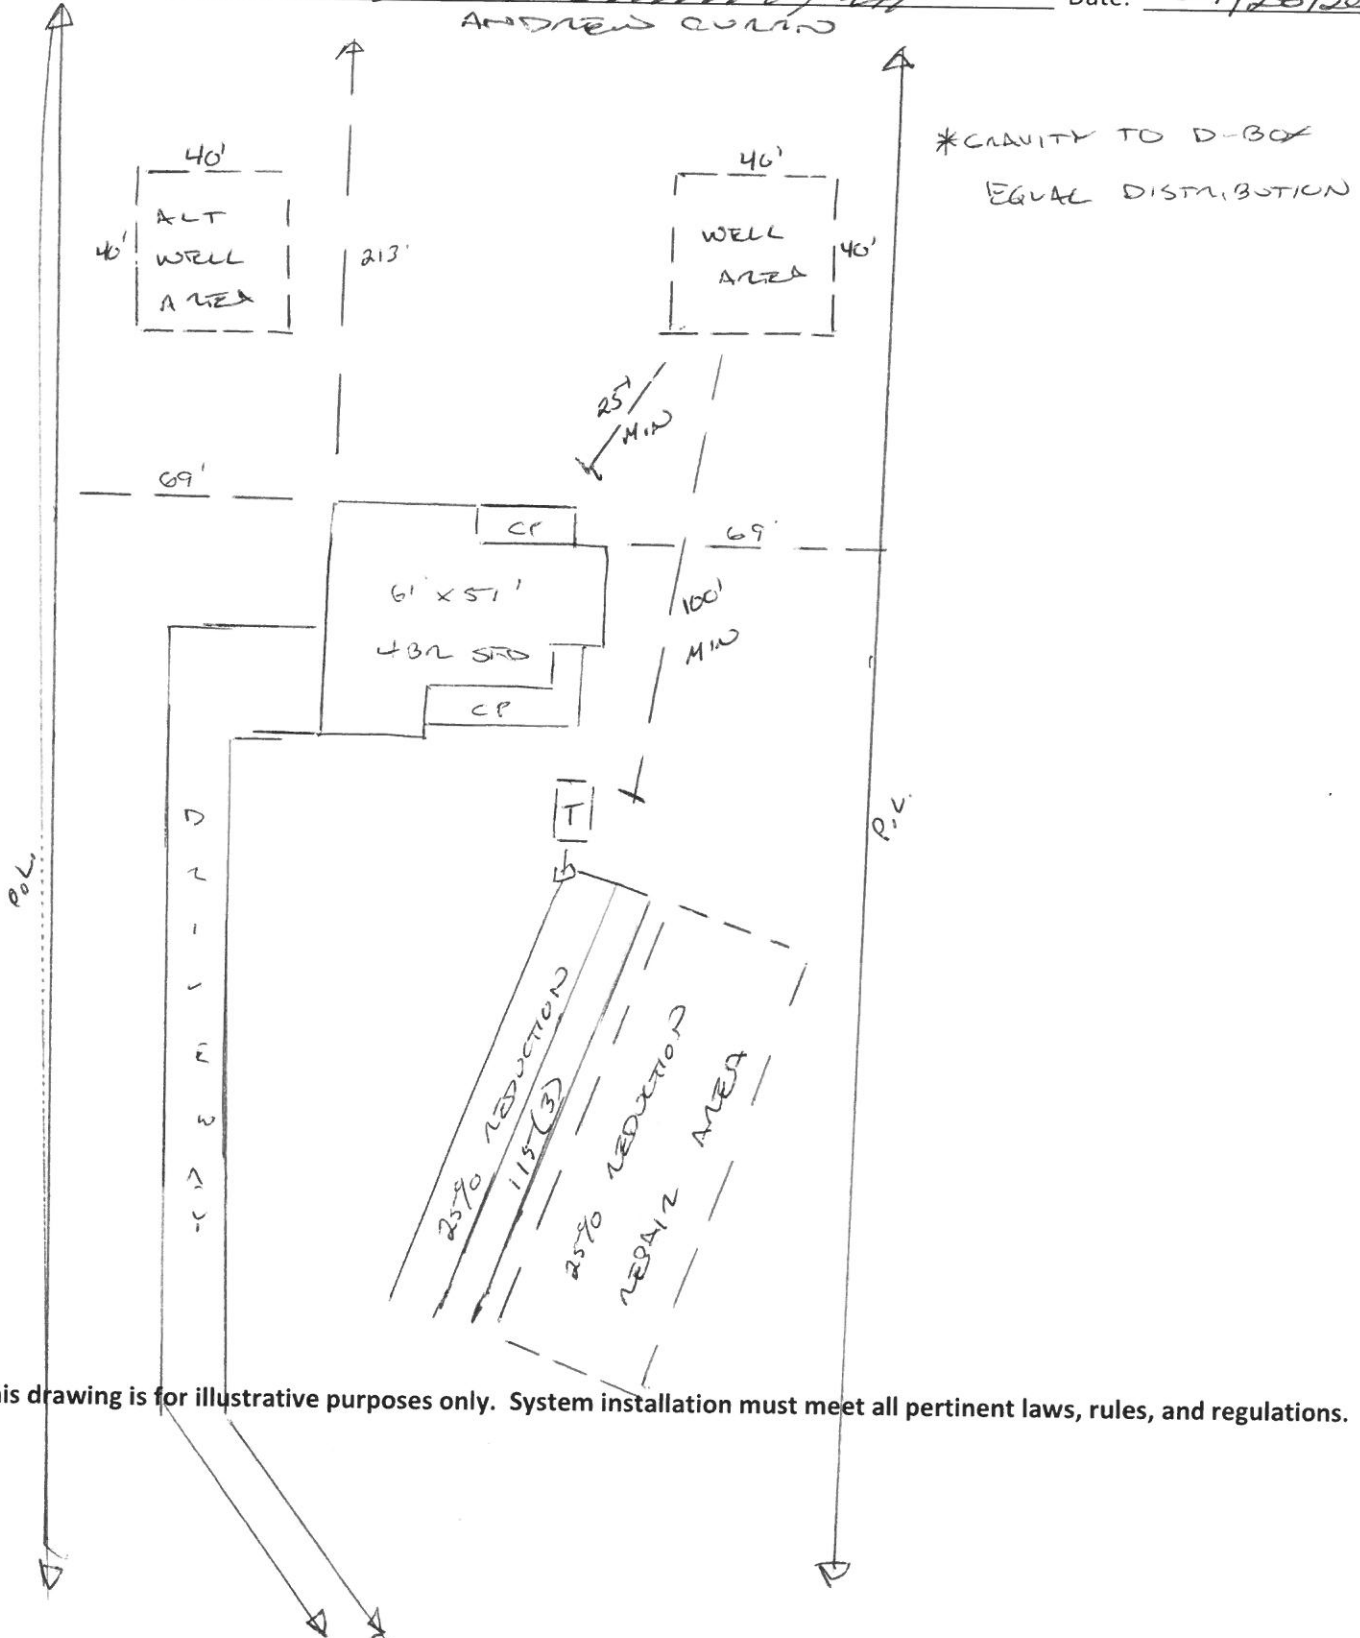 Date:
ANDREW CURRIN
*GRAVITY TO D-BOX
EQUAL DISTRIBUTION
40'
40'
ALT
WELL
AREA
213'
40'
WELL
AREA
40'
25'
MIN
69'
CP
69'
61' x 57'
4BR SFD
100'
MIN
CP
T
P.L.
P.L.
DRIVEWAY
25% REDUCTION
115 (3)
25% REDUCTION
REPAIR AREA
is drawing is for illustrative purposes only. System installation must meet all pertinent laws, rules, and regulations.